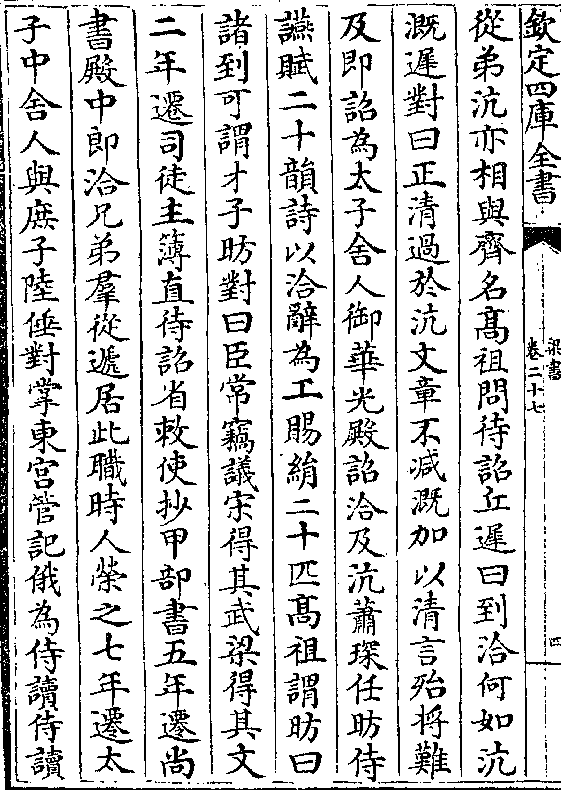 欽定四庫全書
梁書
卷二十七
四
從弟沆亦相與齊名高祖問待詔丘遲曰到洽何如沆
溉遲對曰正清過於沆文章不减溉加以清言殆将難
及即詔為太子舍人御華光殿詔洽及沆蕭琛任昉侍
讌賦二十韻詩以洽辭為工賜絹二十匹髙祖謂昉曰
諸到可謂才子昉對曰臣常竊議宋得其武梁得其文
二年遷司徒主簿直待詔省敕使抄甲部書五年遷尚
書殿中郎洽兄弟羣從遞居此職時人榮之七年遷太
子中舍人與庶子陸倕對掌東宫管記俄為侍讀侍讀